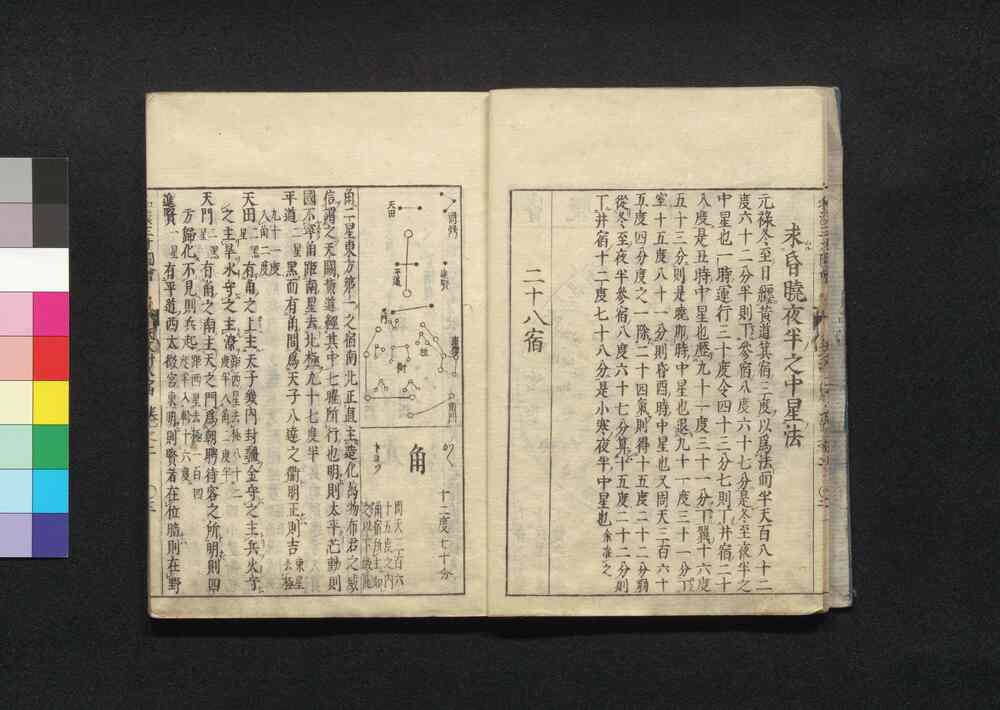 求昏曉夜半之中星法
元祿冬至日躔黃道箕宿三度以爲法而半天百八十二
度六十二分半則丁參宿八度六十七分是冬至夜半之
中星也一時運行三十度令四十三分七則丁井宿二十
八度是丑時中星也歷九十一度三十一分丁翼十六度
五十三分則是曉卯時中星也退九十一度三十一分丁
室十五度八十一分則昏酉時中星也又周天三百六十
五度四分度之一除二十四氣則得十五度二十二分弱
從冬至夜半參宿八度六十七分算十五度二十二分則
丁井宿十二度七十八分是小寒夜半中星也餘准之
二十八宿
周鼎
天田
進賢
平道
天門
角
十二度七十分
周天三百六
十五度之內
角宿所主
角二星東方第一之宿南北正直主造化萬物布君之威
信謂之天關黃道經其中七曜所行也明則太平芒動則
國不平角距南星去北極九十七度半
平道二星黑而有角間爲天子八達之衢明正則吉
天田二星有角之上主天子畿內封疆金守之主兵火守
之主旱水守之主潦
天門二星有角之南主天之門爲朝聘待客之所明則四
方歸化不見則兵起
進賢一星有平道西太微宮東明則賢者在位暗則在野